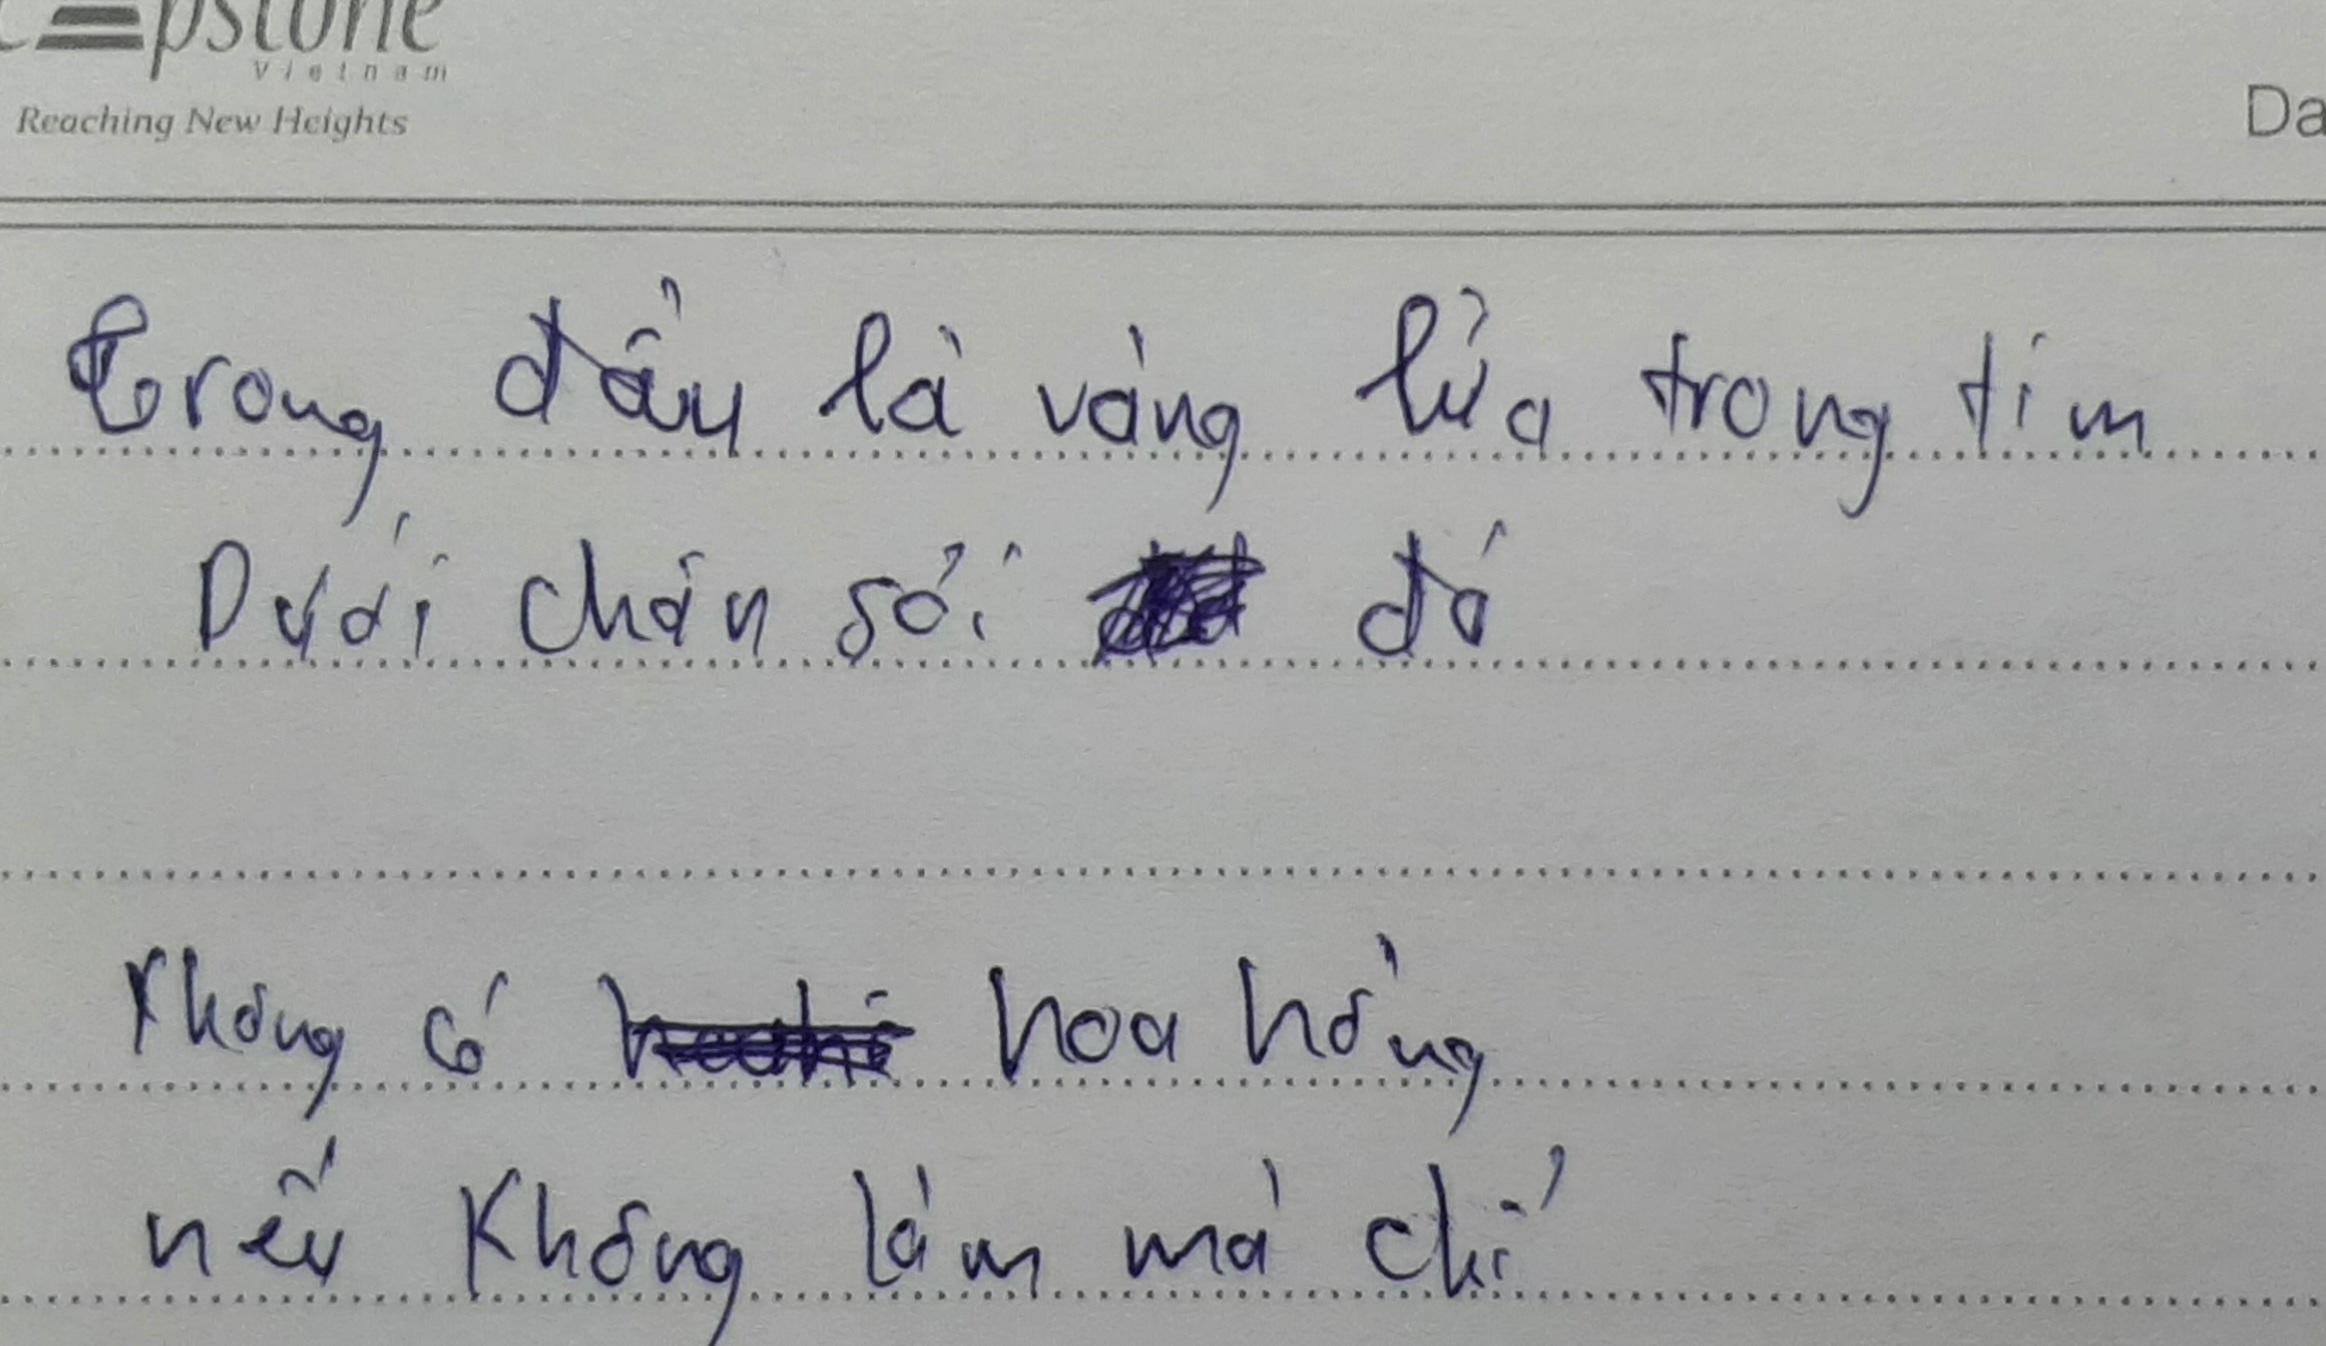 Capstone
Vietnam
Reaching New Heights
Da
Trong đầu là vàng lửa trong tim
Dưới chân sỏi đá
Không có hoa hồng
nếu không làm mà chỉ